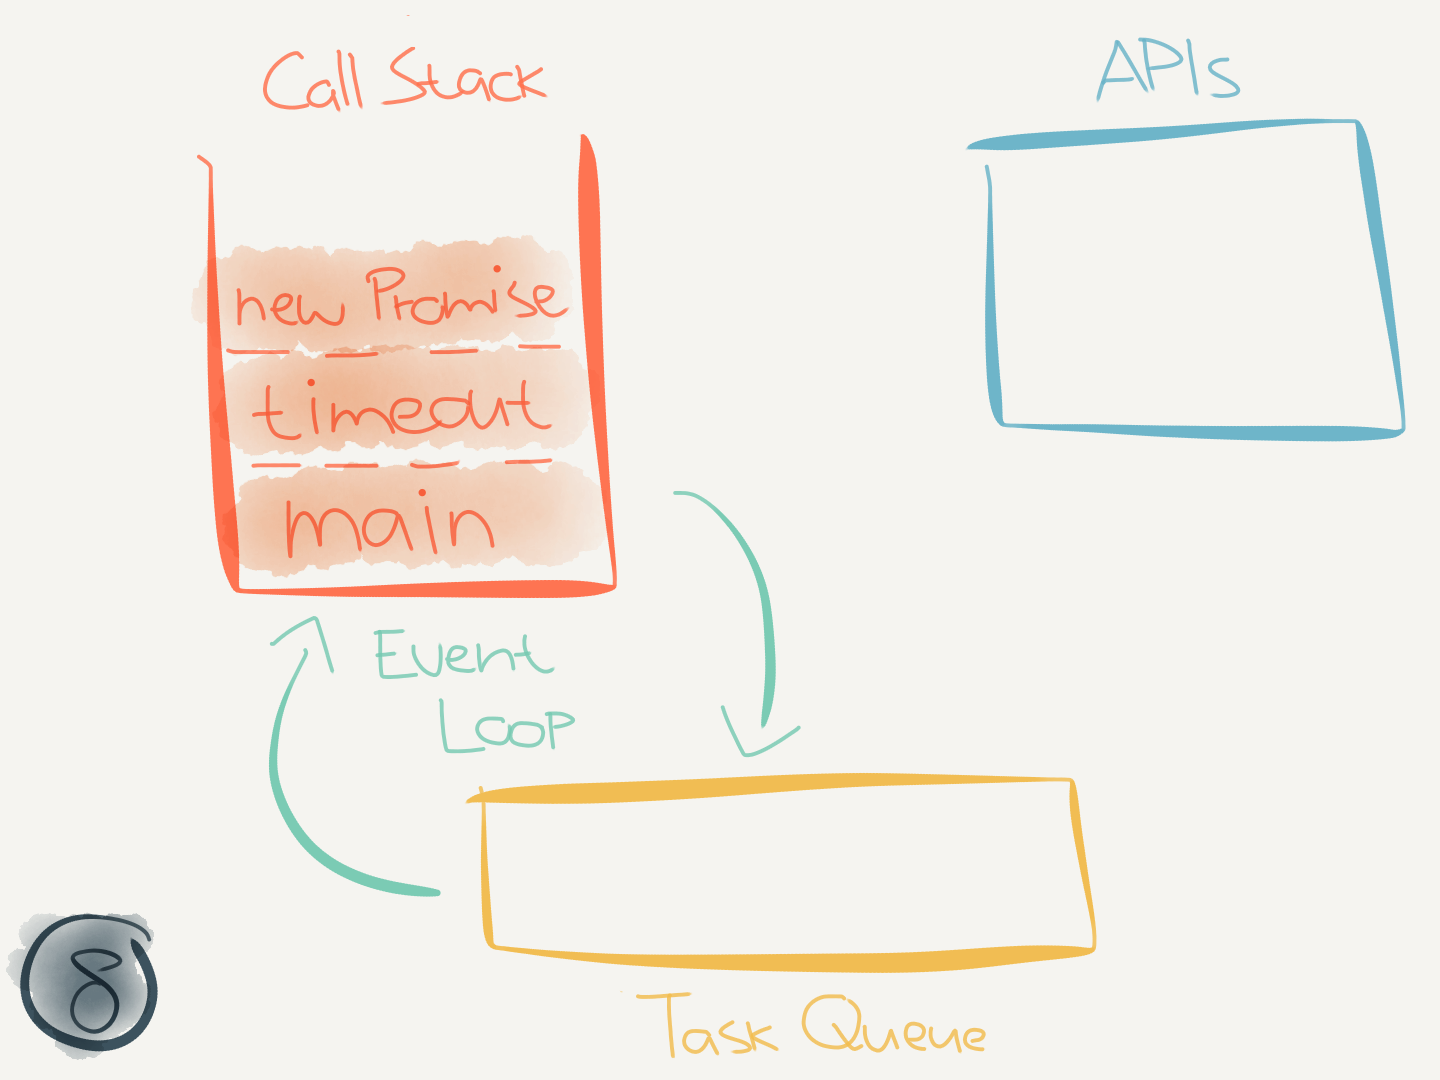 Call Stack
APIs
new Promise
timeout
main
Event
Loop
Task Queue
8